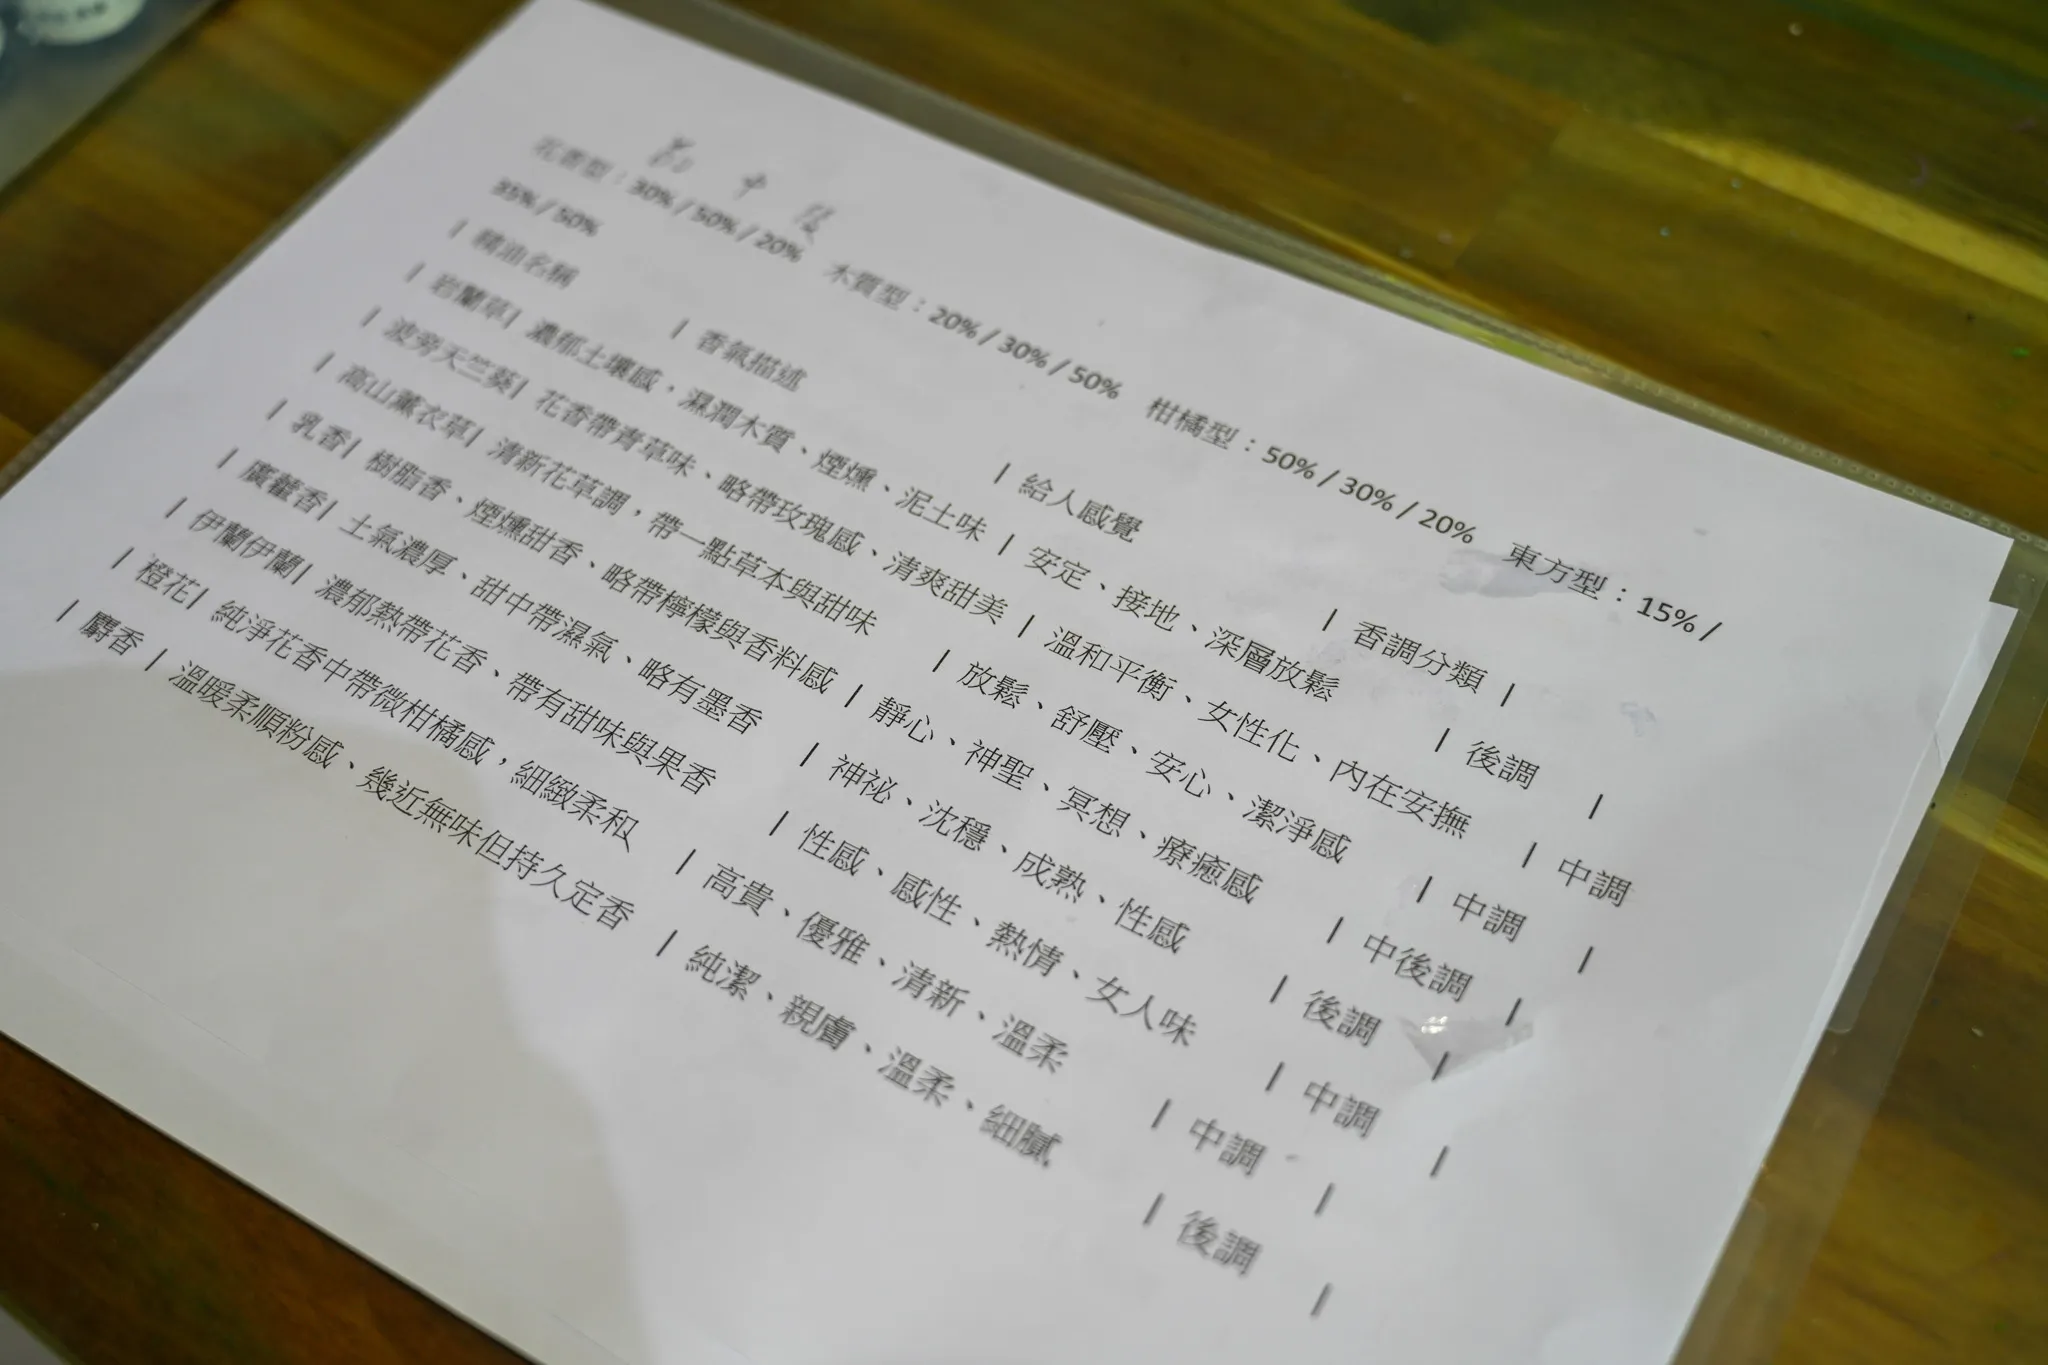 前 中 後
花香型：30% / 50% / 20% 木質型：20% / 30% / 50% 柑橘型：50% / 30% / 20% 東方型：15% /
35% / 50%
| 精油名稱 | 香氣描述 | 給人感覺 | 香調分類 |
| 岩蘭草| 濃郁土壤感，濕潤木質、煙燻、泥土味 | 安定、接地、深層放鬆 | 後調 |
| 波旁天竺葵| 花香帶青草味、略帶玫瑰感、清爽甜美 | 溫和平衡、女性化、內在安撫 | 中調
| 高山薰衣草| 清新花草調，帶一點草本與甜味 | 放鬆、舒壓、安心、潔淨感 | 中調 |
| 乳香| 樹脂香、煙燻甜香、略帶檸檬與香料感 | 靜心、神聖、冥想、療癒感 | 中後調 |
| 廣藿香| 土氣濃厚、甜中帶濕氣、略有墨香 | 神祕、沈穩、成熟、性感 | 後調 |
| 伊蘭伊蘭| 濃郁熱帶花香、帶有甜味與果香 | 性感、感性、熱情、女人味 | 中調 |
| 橙花| 純淨花香中帶微柑橘感，細緻柔和 | 高貴、優雅、清新、溫柔 | 中調 |
| 麝香 | 溫暖柔順粉感、幾近無味但持久定香 | 純潔、親膚、溫柔、細膩 | 後調 |